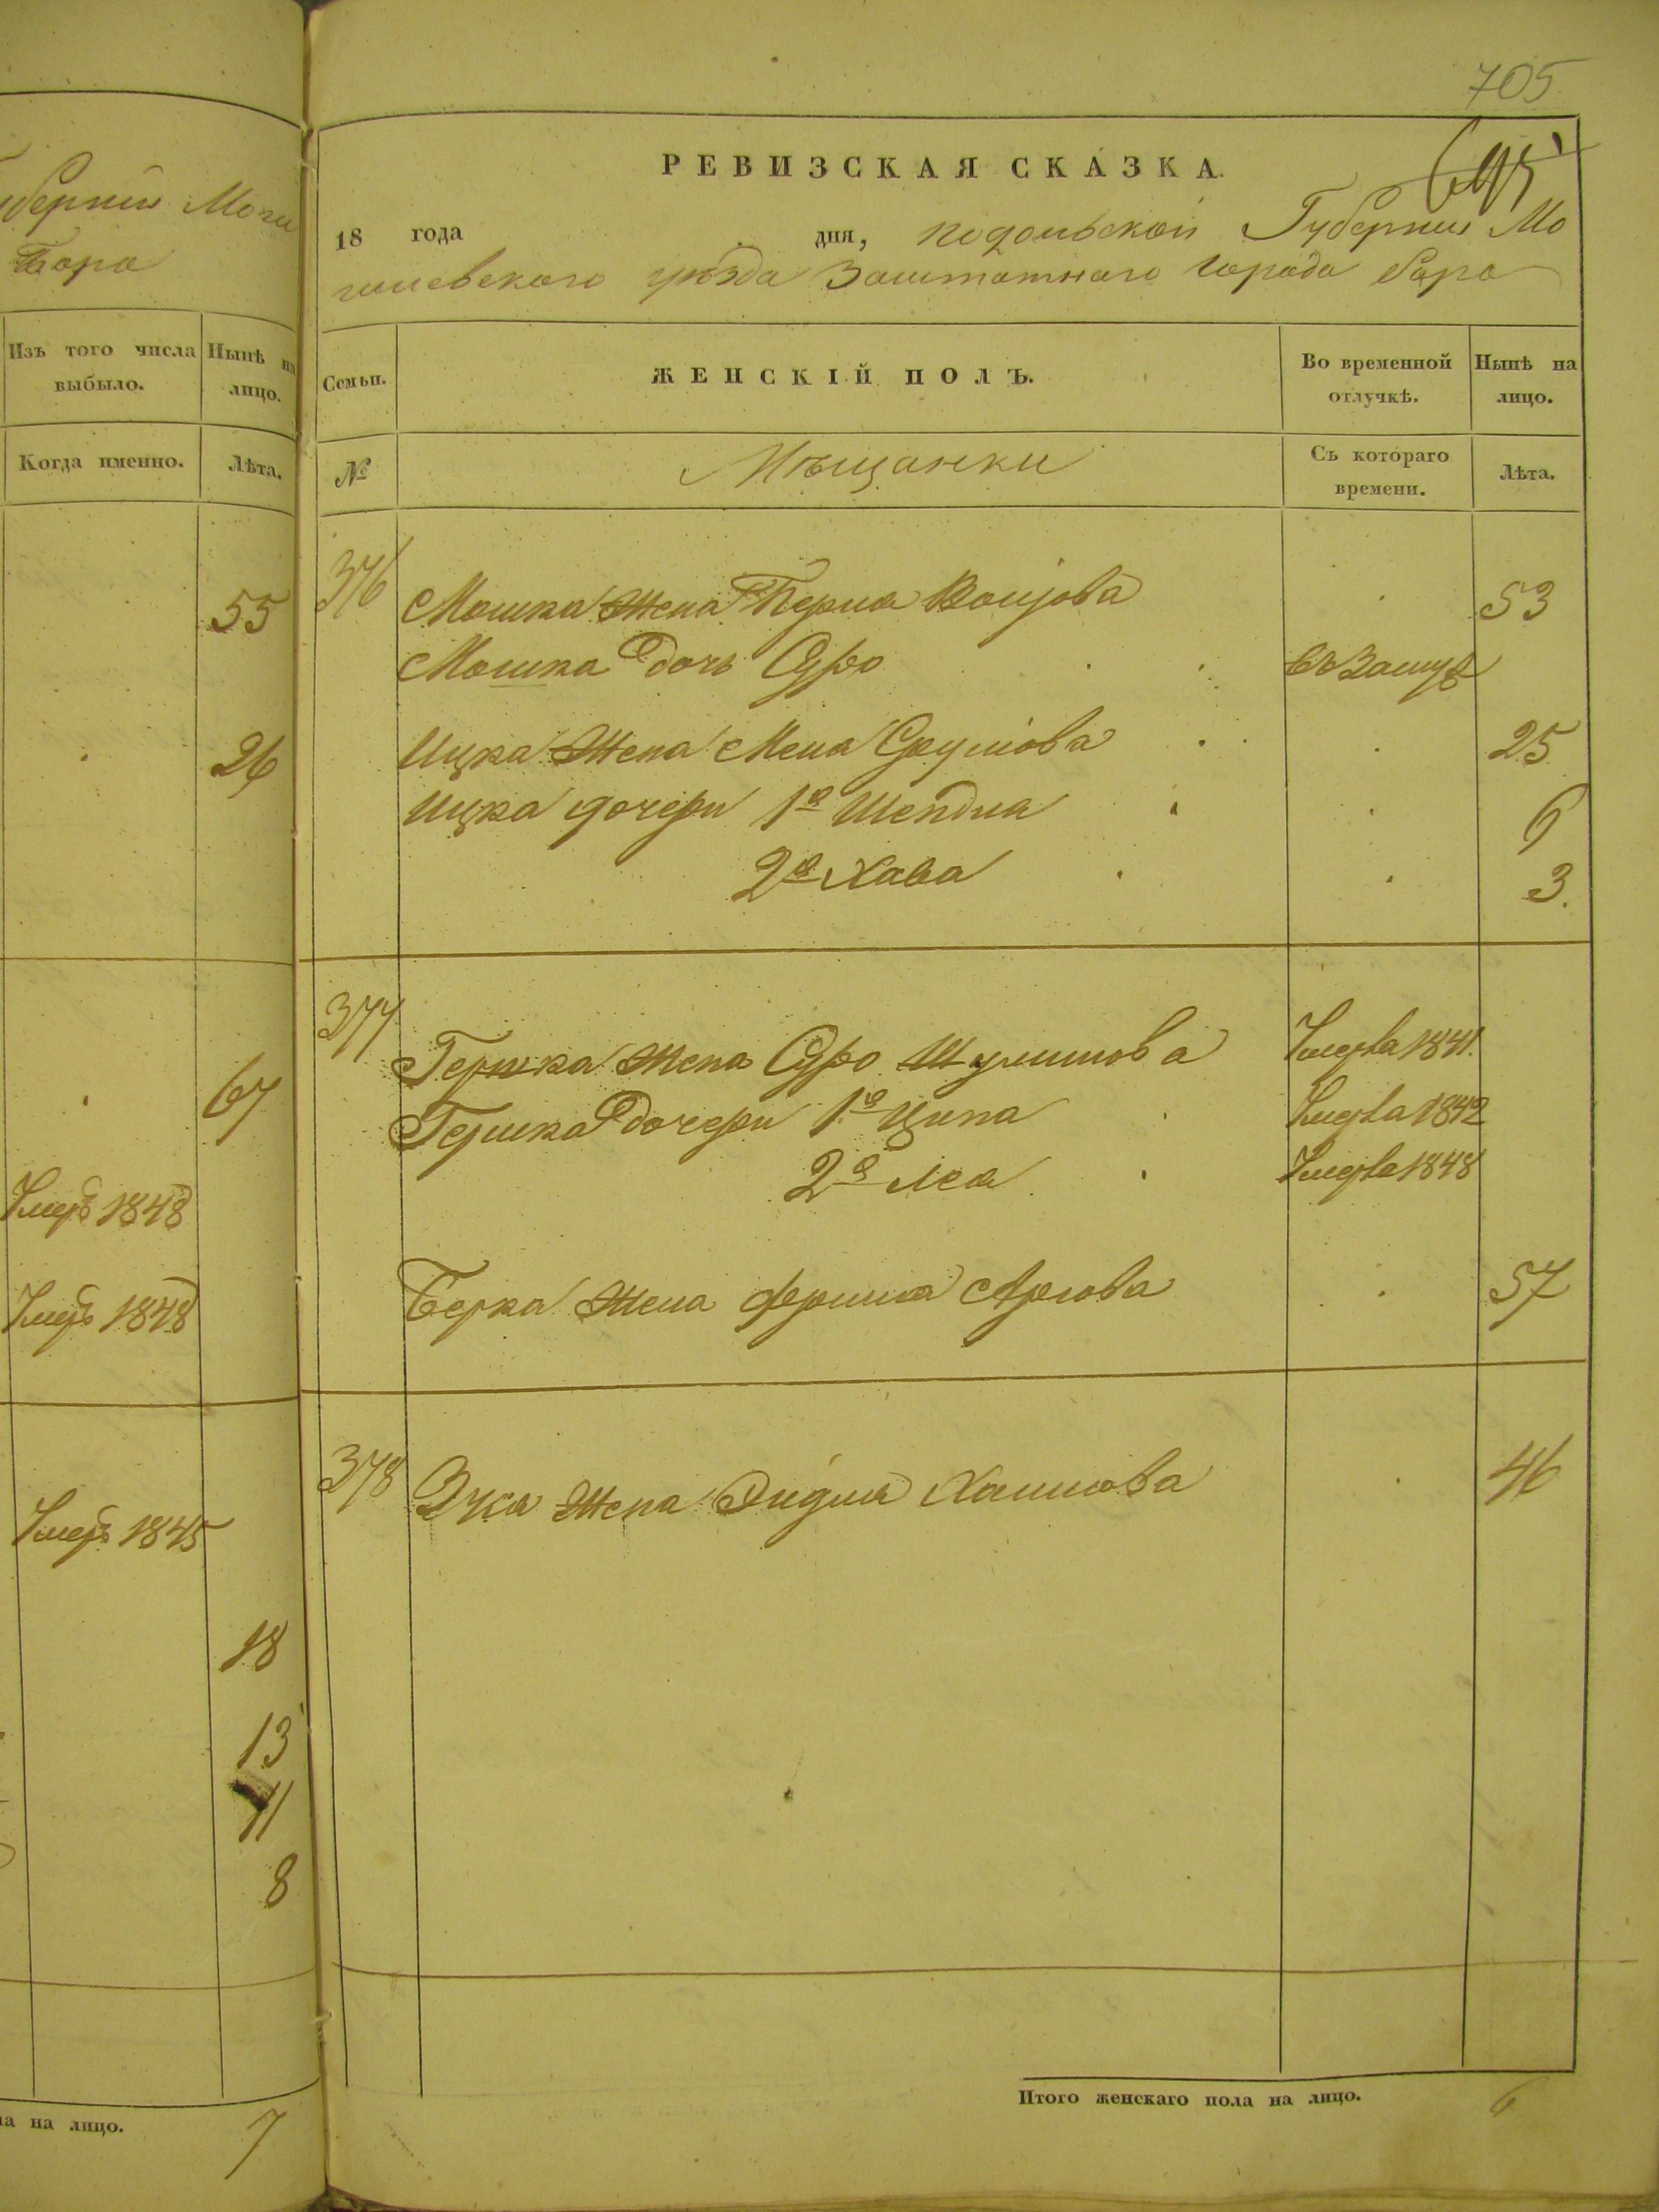 уберніи Моги
Бара
Изъ того числа выбыло.
Нынѣ на лицо.
Когда именно.
Лѣта.
55
26
67
Умеръ 1848
Умеръ 1848
Умеръ 1845
18
13
11
8
на лицо.
7
705
РЕВИЗСКАЯ СКАЗКА.
18 года дня, подольской Губерніи Мо
гилевскаго уѣзда Заштатнаго города Бара
Семьи.
ЖЕНСКІЙ ПОЛЪ.
Во временной отлучкѣ.
Нынѣ на лицо.
№
Мѣщанки
Съ котораго времени.
Лѣта.
376 Мошка Жена Перла 53
Мошка дочь Сура въ Замуж
Ицка Жена Мена Срулiова 25
Ицка дочери 1я Шендла 6
2я Хава 3
377 Гершка Жена Сура Шулимова Умерла 1841
Гершка дочери 1я Ципа Умерла 1842
2я Леа Умерла 1848
Берка Жена Фрима Аріова 57
378 Жена Эйдля Хаимова 46
Итого женскаго пола на лицо. 6